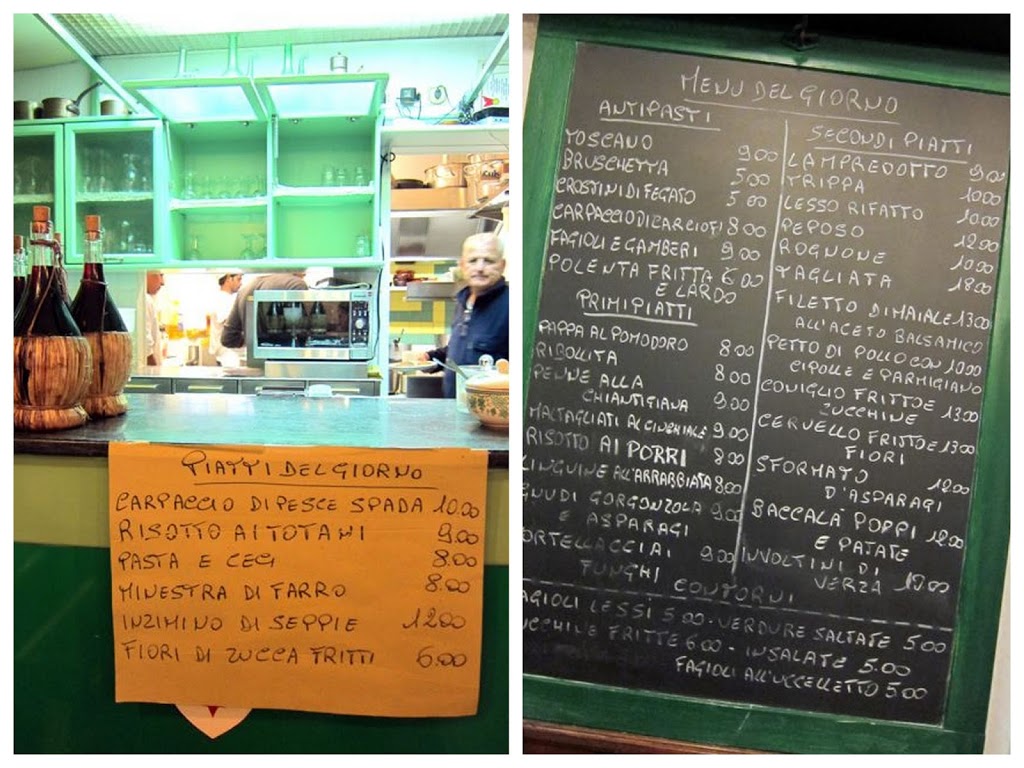 PIATTI DEL GIORNO
CARPACCIO DI PESCE SPADA 10.00
RISOTTO AI TOTANI 9.00
PASTA E CECI 8.00
MINESTRA DI FARRO 8.00
INZIMINO DI SEPPIE 12.00
FIORI DI ZUCCA FRITTI 6.00
MENU DEL GIORNO
ANTIPASTI
TOSCANO 9.00
BRUSCHETTA 5.00
CROSTINI DI FEGATO 5.00
CARPACCIO DI CARCIOFI 8.00
FAGIOLI E GAMBERI 9.00
POLENTA FRITTA 6.00
E LARDO
PRIMI PIATTI
PAPPA AL POMODORO 8.00
RIBOLLITA 8.00
PENNE ALLA
CHIANTIGIANA 9.00
MALTAGLIATI AL CINGHIALE 9.00
RISOTTO AI PORRI 8.00
LINGUINE ALL'ARRABBIATA 8.00
GNUDI GORGONZOLA 9.00
E ASPARAGI
ORTELLACCI AI 9.00
FUNGHI
SECONDI PIATTI
LAMPREDOTTO 9.00
TRIPPA 10.00
LESSO RIFATTO 10.00
PEPOSO 12.00
ROGNONE 10.00
TAGLIATA 18.00
FILETTO DI MAIALE 13.00
ALL'ACETO BALSAMICO
PETTO DI POLLO CON 10.00
CIPOLLE E PARMIGIANO
CONIGLIO FRITTO E 13.00
ZUCCHINE
CERVELLO FRITTO E 13.00
FIORI
SFORMATO 12.00
D'ASPARAGI
BACCALÀ POPPI 12.00
E PATATE
INVOLTINI DI 10.00
VERZA
CONTORNI
AGIOLI LESSI 5.00 - VERDURE SALTATE 5.00
UCCHINE FRITTE 6.00 - INSALATE 5.00
FAGIOLI ALL'UCCELLETTO 5.00